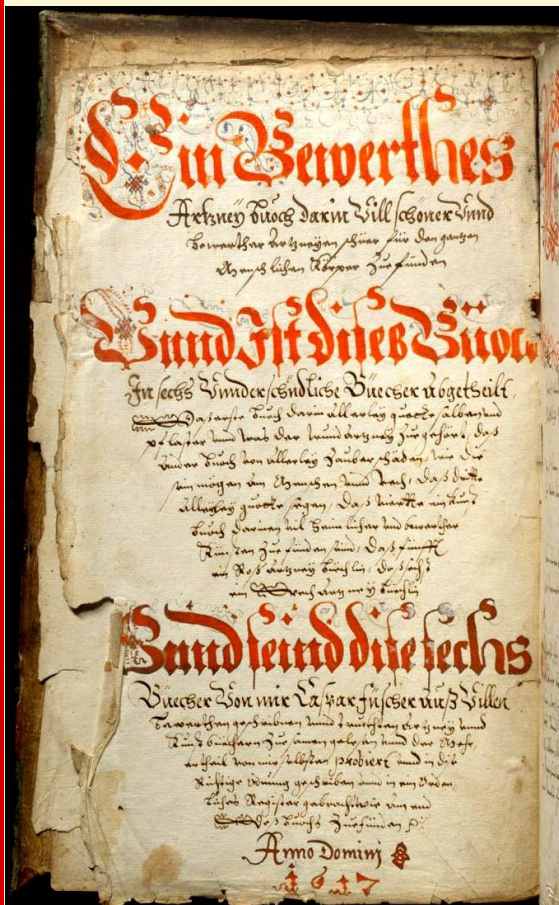 Ein Bewerthes
Artzney buoch darin Vill schöner Vnd
bewerther Artzneyen schier für den gantzen
Mensch lichen Körper Zue finden
Vnnd Ist dises Buoch
In sechs Vnderschidliche Büecher abgetheilt,
Das erste buch darin allerley guotte salben vnd
pflaster vnnd was der wund artzney Zue gehört, daß
ander buch von allerley Zauber schäden, wie die
sein mögen am Menschen vnnd vech, daß dritte
Allerley guotte segen, daß vierte ein Kunst
buoch darinen vil heimlicher vnd bewerther
Künsten Zue finden seind, daß fünfft
ein Roß artzney büechlin, daß sechst
ein Vech artzney büechlin
Vnnd seind dise sechs
Büecher Von mir Caspar Füscher auß Villen
bewerthen geschribnen vnnd truchten Artzney vnnd
Kunst büechern Zue samen gelesen vnnd der Mehr
er theil von mir selbsten probiert vnnd in diß
Richtige ordnung geschriben vnnd in ein orden,
liches Register gebracht wie am end
Deß buochs Zue finden
Anno Domini
1647